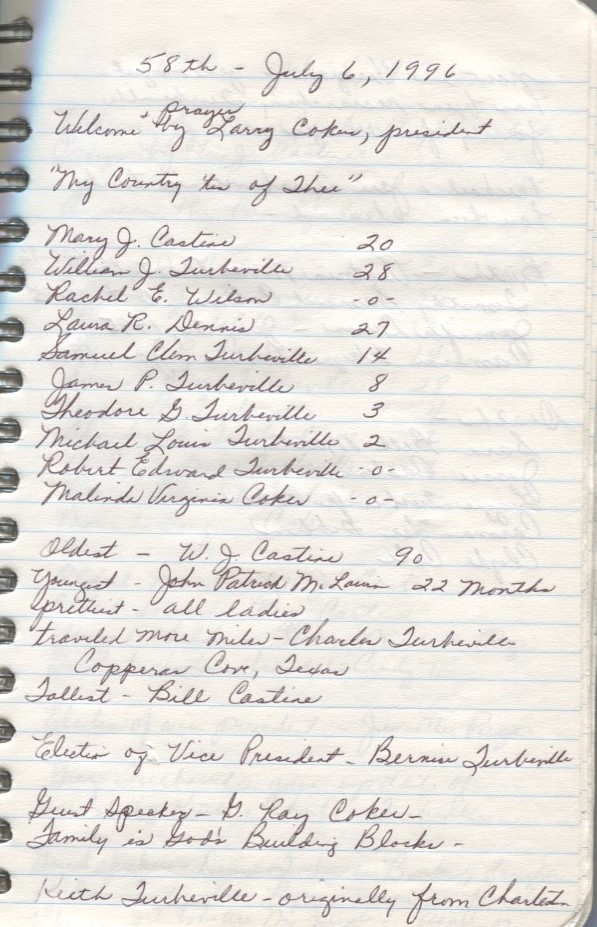 58th - July 6, 1996
Welcome + prayer by Larry Coker, president
"My Country 'tis of Thee"
Mary J. Castine 20
William J. Turbeville 28
Rachel E. Wilson -0-
Laura R. Dennis 27
Samuel Clem Turbeville 14
James P. Turbeville 8
Theodore G. Turbeville 3
Michael Louis Turbeville 2
Robert Edward Turbeville -0-
Malinda Virginia Coker -0-
Oldest - W. J. Castine 90
Youngest - John Patrick McLain 22 months
prettiest - all ladies
traveled more miles - Charles Turbeville
Copperas Cove, Texas
Tallest - Bill Castine
Election of Vice President - Bernise Turbeville
Guest Speaker - G. Ray Coker -
Family is God's Building Blocks -
Keith Turbeville - originally from Charleston